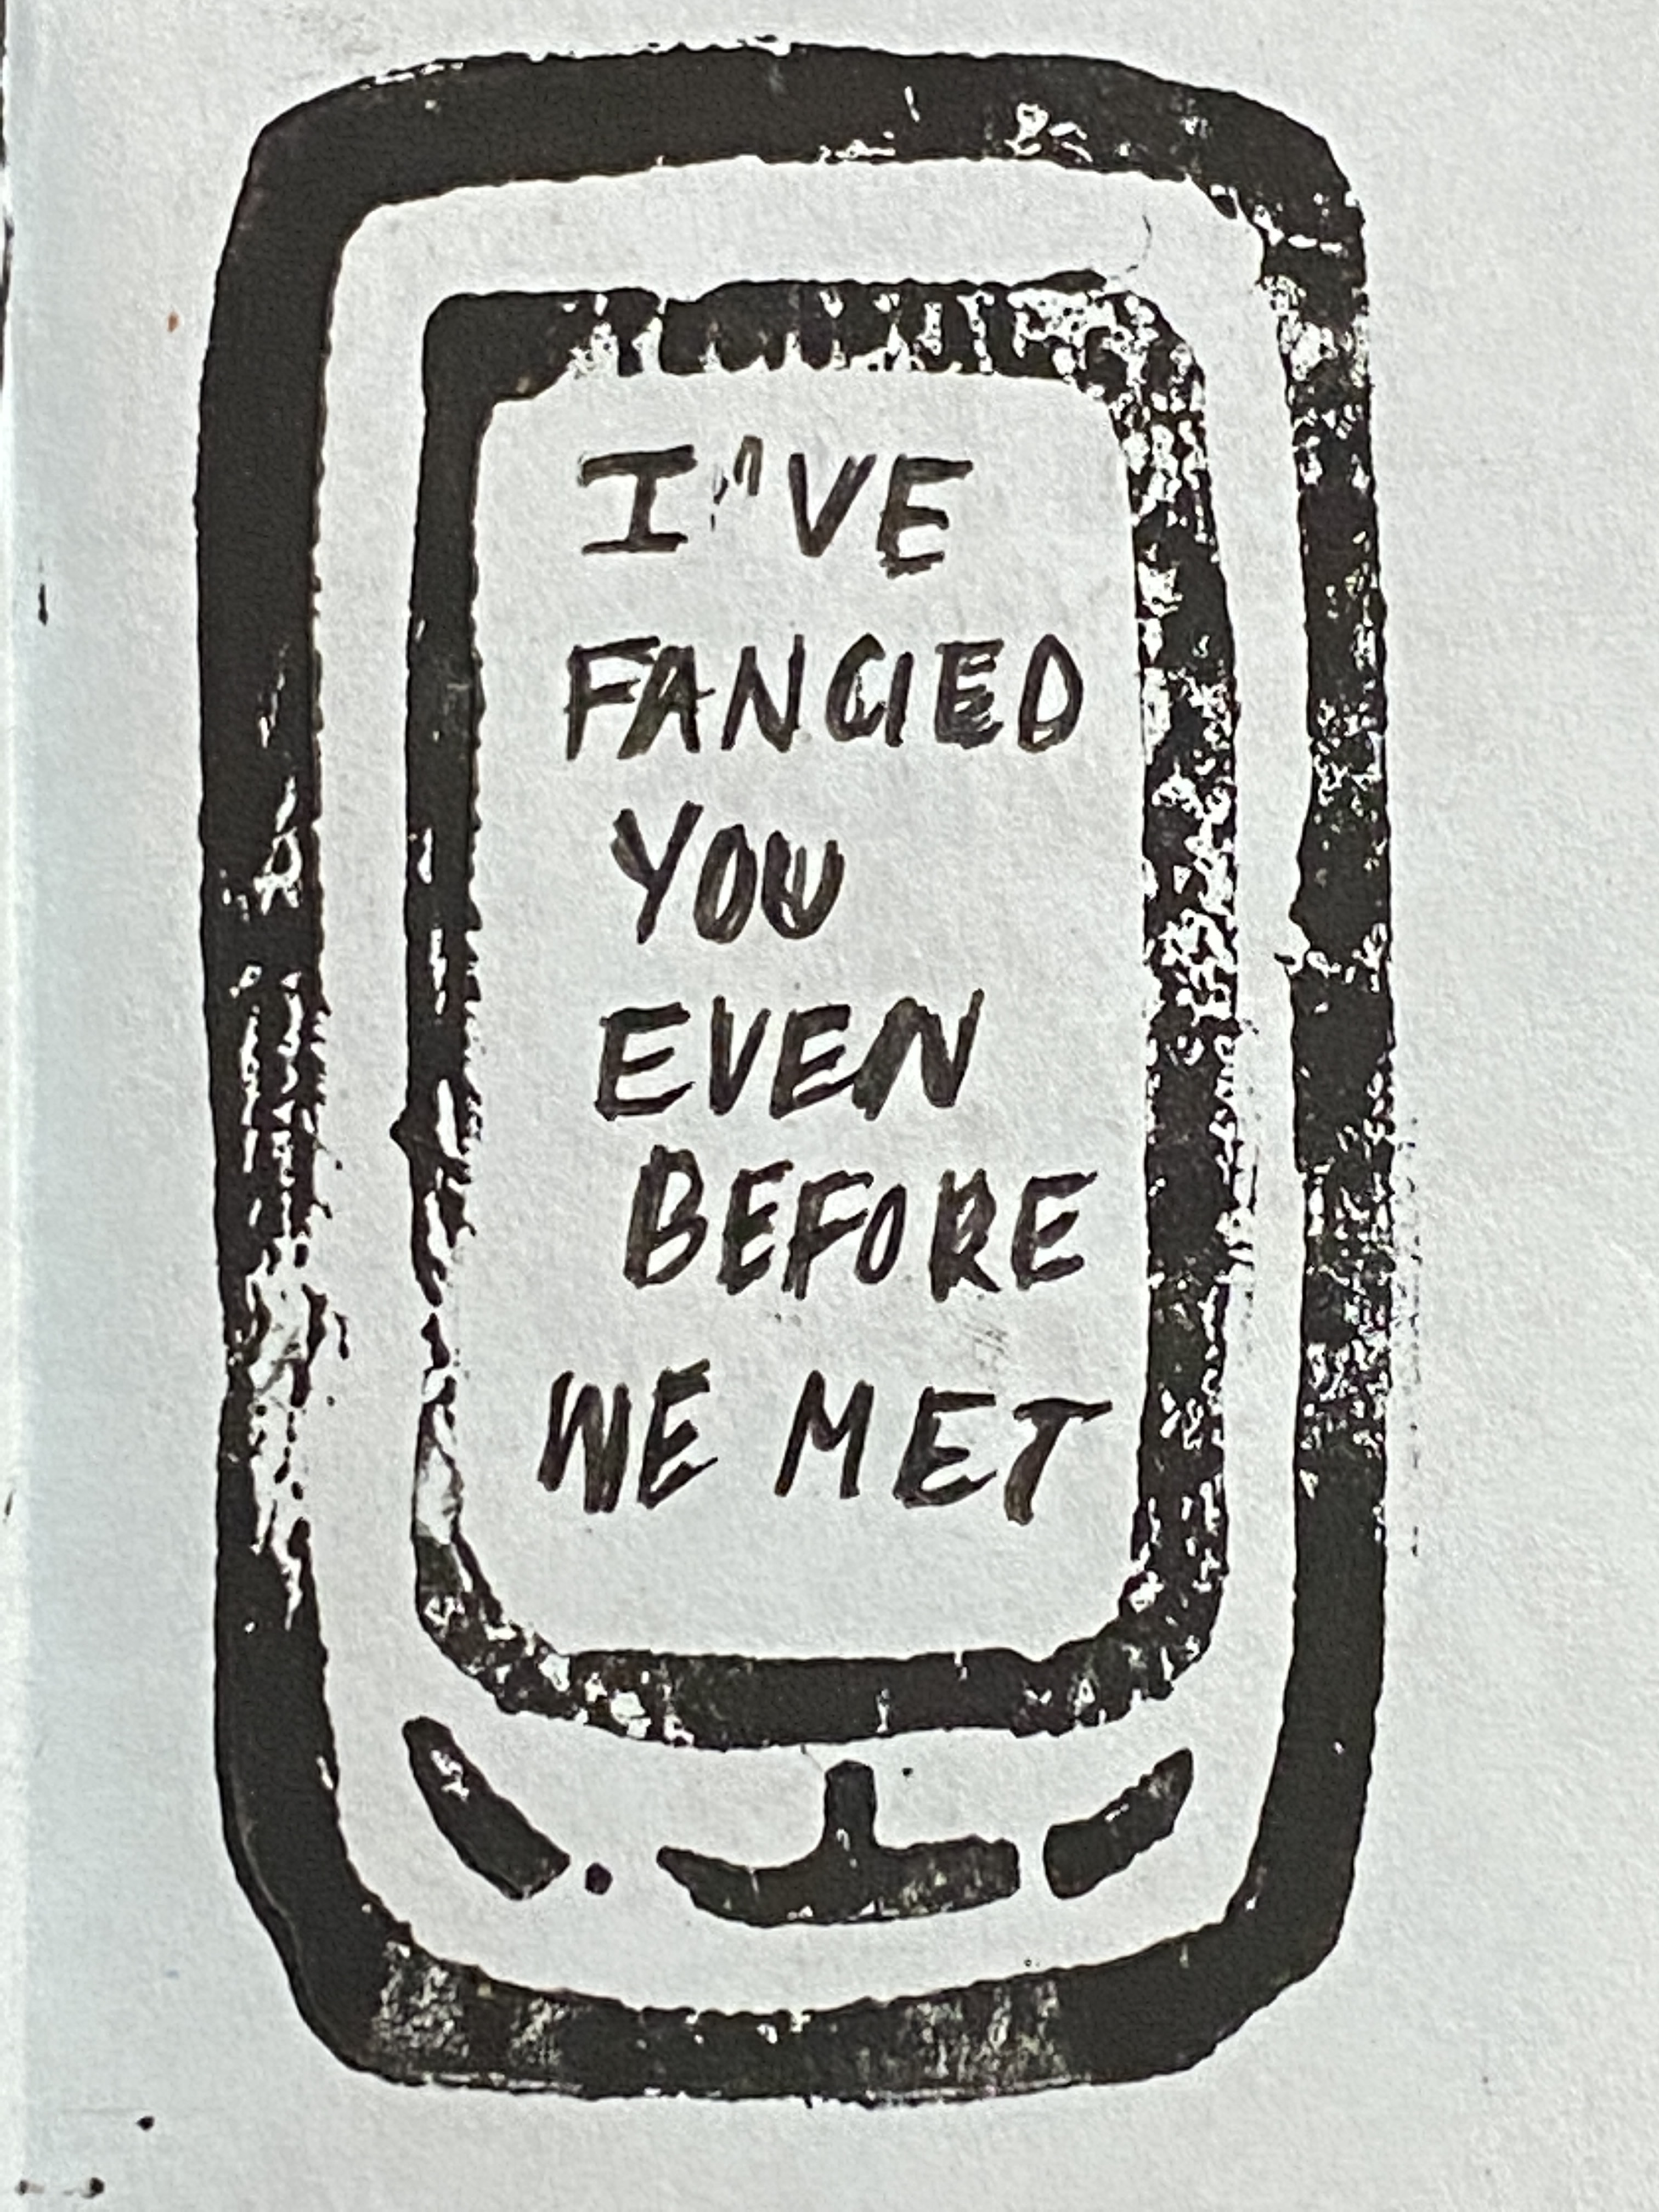 I'VE
FANCIED
YOU
EVEN
BEFORE
WE MET